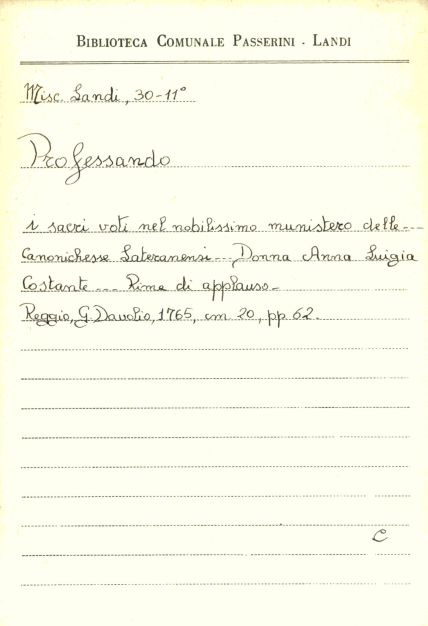 BIBLIOTECA COMUNALE PASSERINI - LANDI
Misc. Landi, 30-11°
Professando
i sacri voti nel nobilissimo munistero delle ---
Canonichesse Lateranensi --- Donna Anna Luigia
Costante --- Rime di applauso -
Reggio, G. Davolio, 1765, cm 20, pp 62.
C